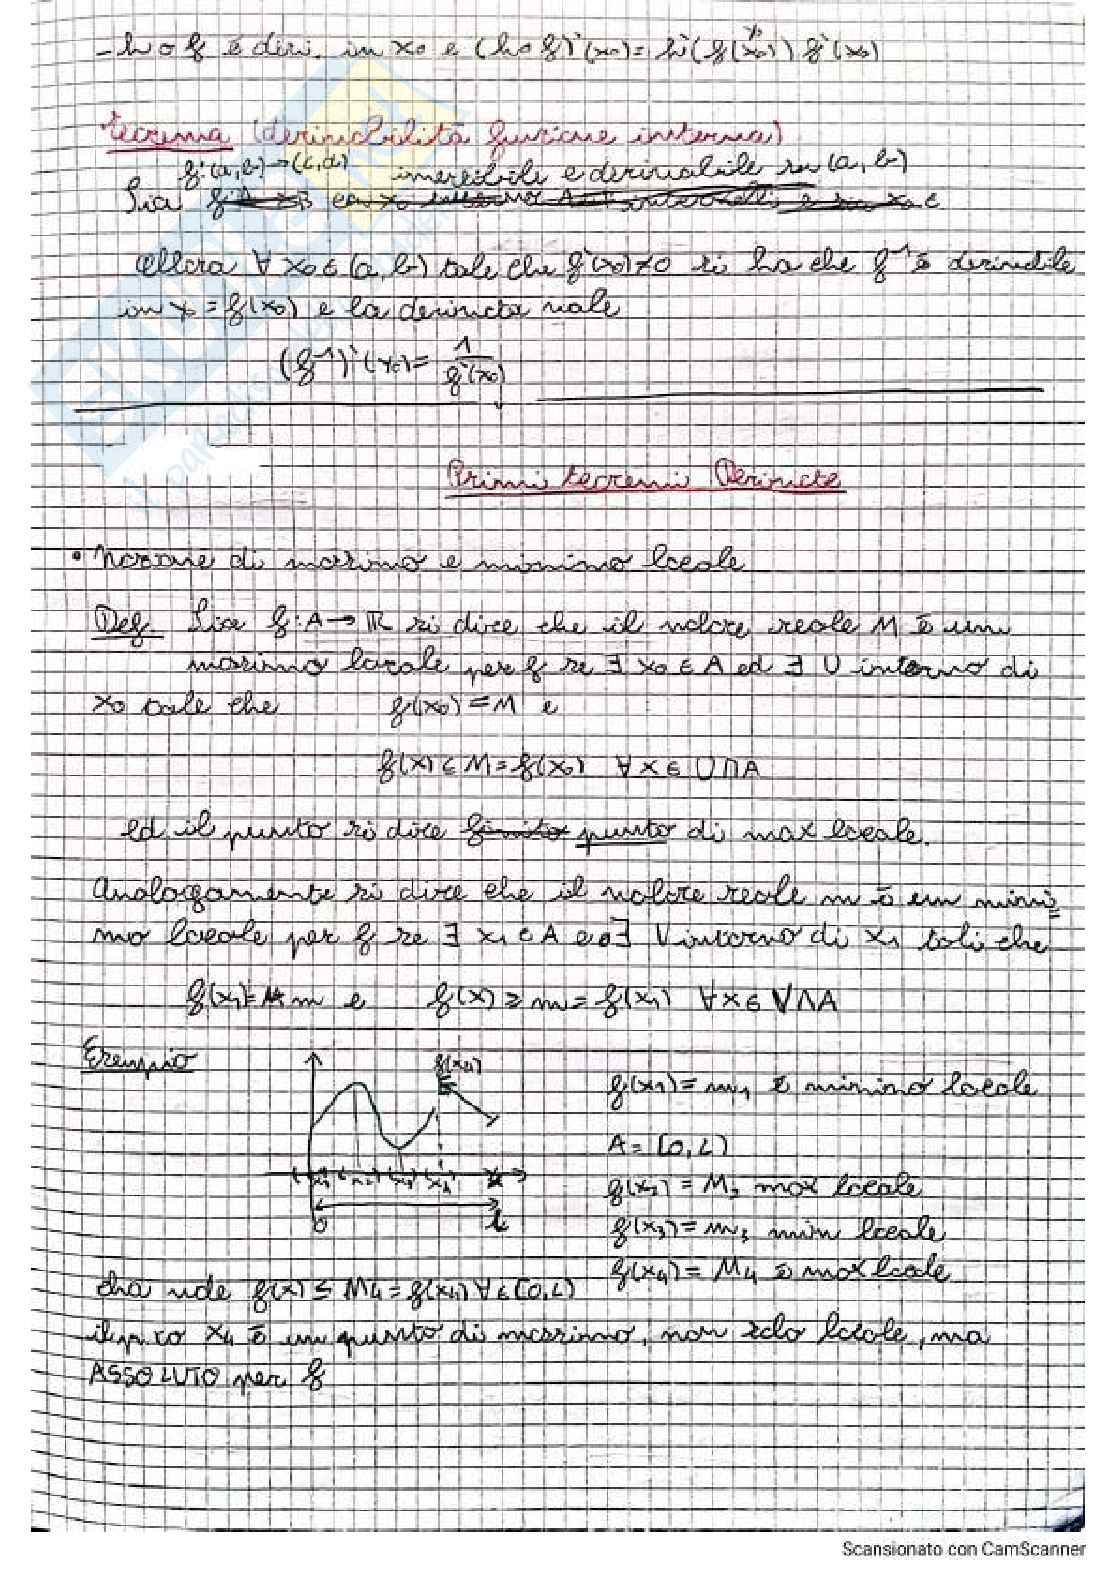 - h∘f è deri. in x₀ e (h∘f)'(x₀) = h'(f(x₀)) f'(x₀)
y₀
Teorema (derivabilità funzione inversa)
f: (a,b) → (c,d) invertibile e derivabile su (a,b)
Sia
Allora ∀ x₀ ∈ (a,b) tale che f'(x₀) ≠ 0 si ha che f⁻¹ è derivabile
in y₀ = f(x₀) e la derivata vale
(f⁻¹)'(y₀) = 1/f'(x₀)
Primi teoremi Derivate
• Nozione di massimo e minimo locale
Def. Sia f: A → ℝ si dice che il valore reale M è un
massimo locale per f se ∃ x₀ ∈ A ed ∃ U intorno di
x₀ tale che f(x₀) = M e
f(x) ≤ M = f(x₀) ∀ x ∈ U∩A
ed il punto si dice punto di max locale.
Analogamente si dice che il valore reale m è un mini
mo locale per f se ∃ x₁ ∈ A ed ∃ V intorno di x₁ tali che
f(x₁) = m e f(x) ≥ m = f(x₁) ∀ x ∈ V∩A
Esempio
f(x₄)
f(x₁) = m₁ è minimo locale
A = [0, L)
f(x₂) = M₂ max locale
x₁ x₂ x₃ x₄
f(x₃) = m₃ min locale
0 L
f(x₄) = M₄ è max locale
Ora vale f(x) ≤ M₄ = f(x₄) ∀ ∈ [0, L)
il p.to x₄ è un punto di massimo, non solo locale, ma
ASSOLUTO per f
Scansionato con CamScanner